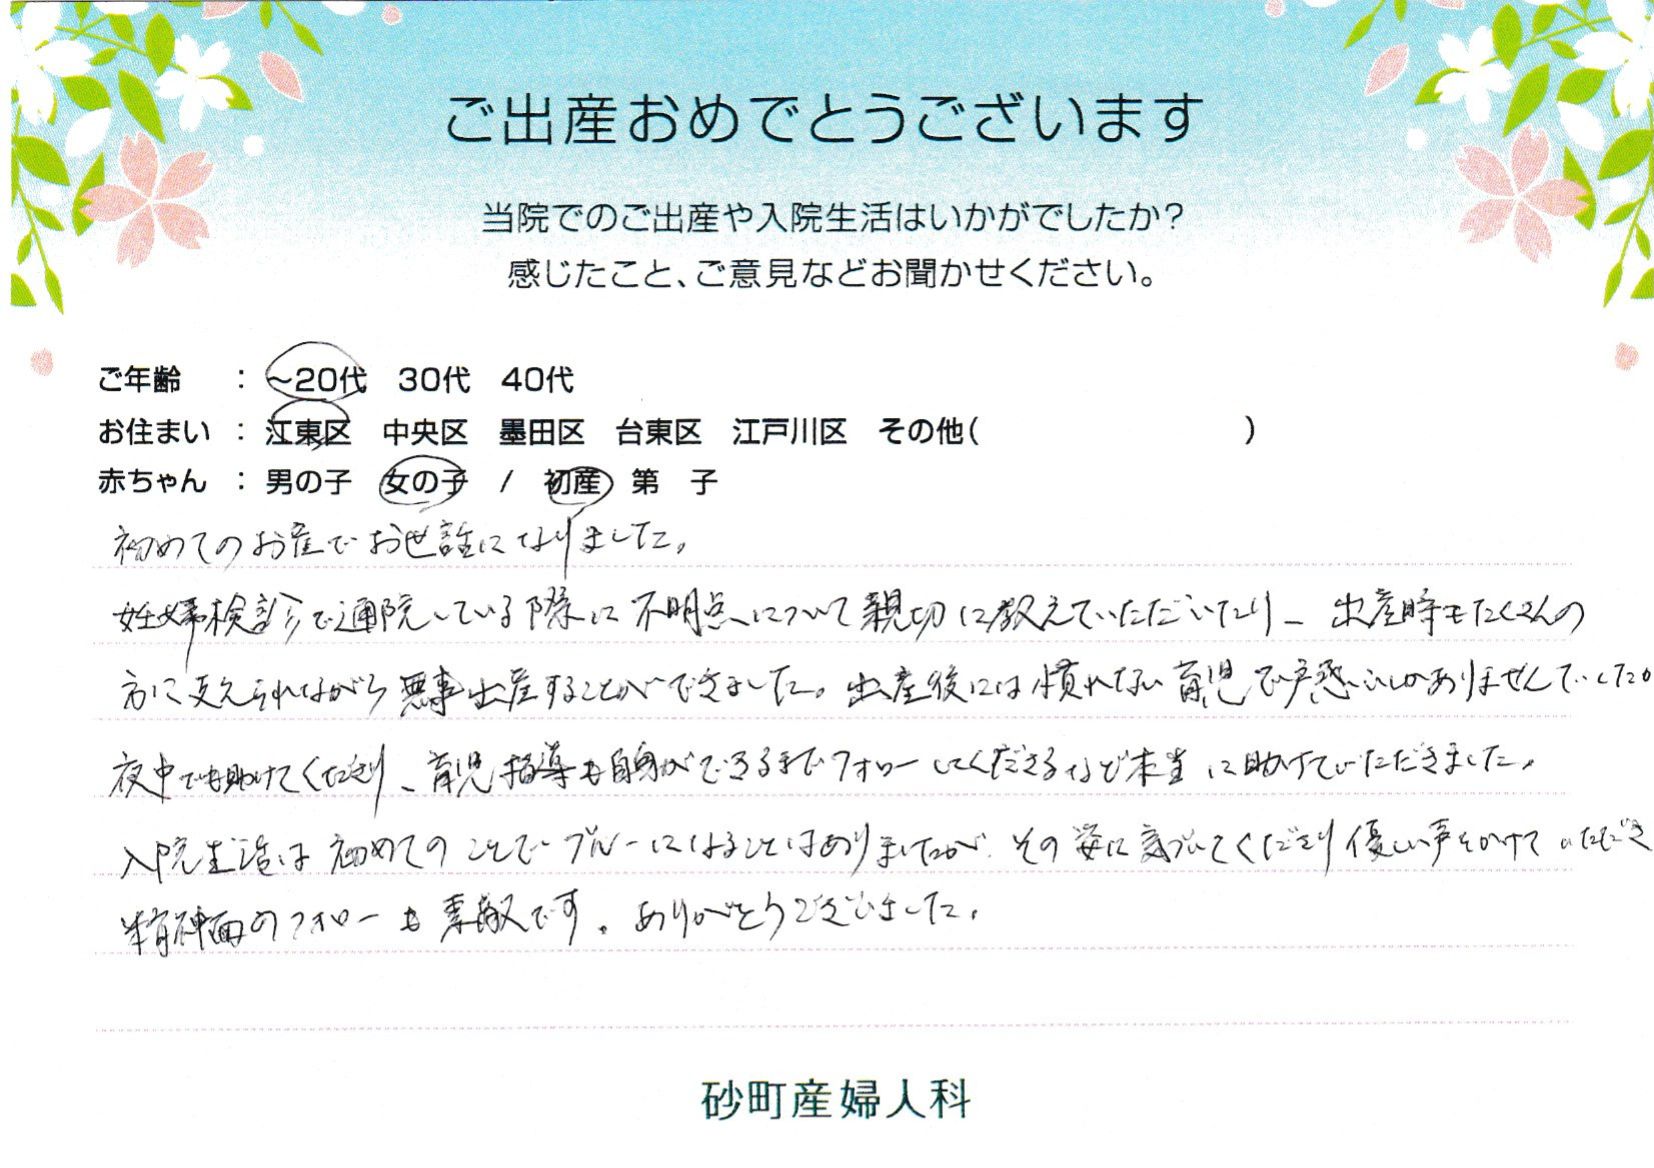 ご出産おめでとうございます
当院でのご出産や入院生活はいかがでしたか？
感じたこと、ご意見などお聞かせください。
ご年齢 ： ～20代 30代 40代
お住まい ： 江東区 中央区 墨田区 台東区 江戸川区 その他( )
赤ちゃん ： 男の子 女の子 / 初産 第 子
初めてのお産でお世話になりました。
妊婦検診で通院している際に不明点について親切に教えていただいたり、出産時もたくさんの
方に支えられながら無事出産することができました。出産後には慣れない育児で戸惑いしかありませんでしたが
夜中でも助けてくださり、育児指導も自身ができるまでフォローしてくださるなど本当に助けていただきました。
入院生活は初めてのことでブルーになることはありましたが、その姿に気づいてくださり優しい声をかけていただき
精神面のフォローも素敵です。ありがとうございました。
砂町産婦人科